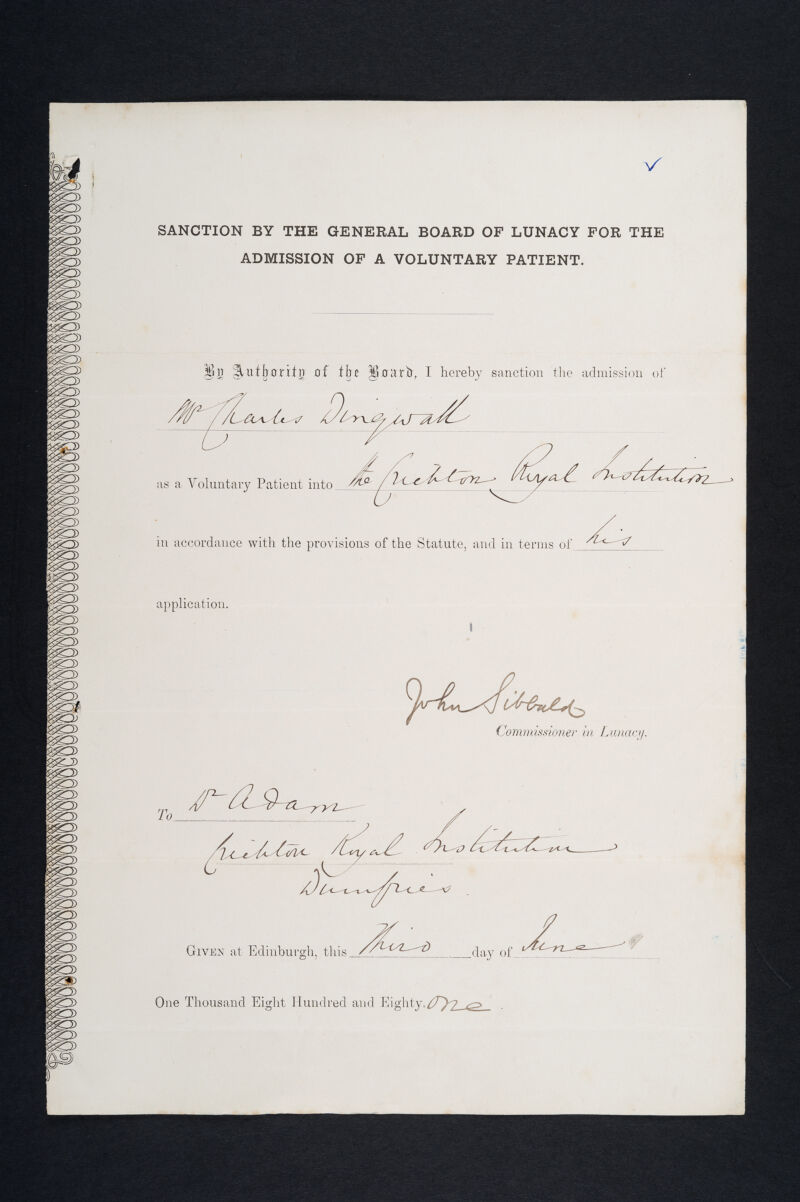 SANCTION BY THE GENERAL BOARD OF LUNACY FOR THE
ADMISSION OF A VOLUNTARY PATIENT.
By Authority of the Board, I hereby sanction the admission of
Mr Charles Dingwall
as a Voluntary Patient into the Crichton Royal Institution
in accordance with the provisions of the Statute, and in terms of his
application.
John Sibbald
Commissioner in Lunacy.
To Dr Adam
Crichton Royal Institution
Dumfries.
GIVEN at Edinburgh, this Third day of June
One Thousand Eight Hundred and Eighty-One.